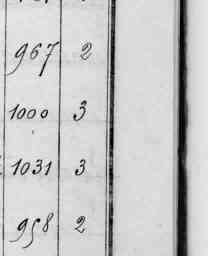 967 2
1000 3
1031 3
958 2